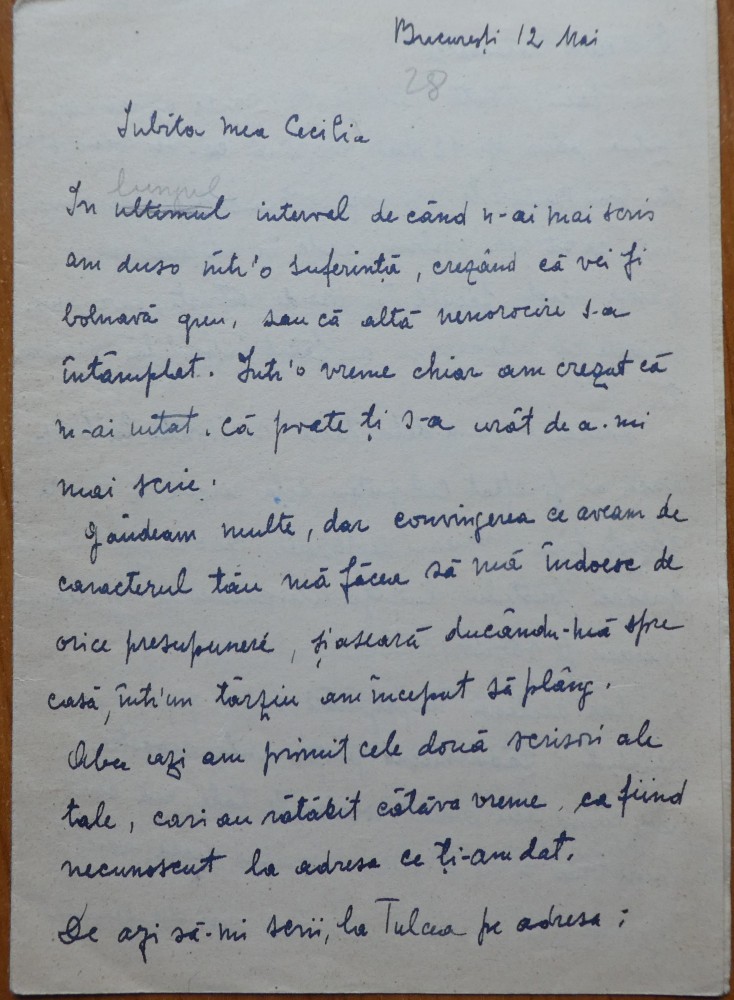 București 12 Mai
28
Iubita mea Cecilia
lungul
In ultimul interval de când n-ai mai scris
am duso într'o suferință, crezând că vei fi
bolnavă greu, sau că altă nenorocire s-a
întâmplat. Intr'o vreme chiar am crezut că
m-ai uitat. Că poate ți s-a urât de a-mi
mai scrie.
Gândeam multe, dar convingerea ce aveam de
caracterul tău mă făcea să mă îndoesc de
orice presupunere, și aseară ducându-mă spre
casă, într'un târziu am început să plâng.
Abea azi am primit cele două scrisori ale
tale, cari au rătăcit câtăva vreme, ca fiind
necunoscut la adresa ce ți-am dat.
De azi să-mi scrii, la Tulcea pe adresa: